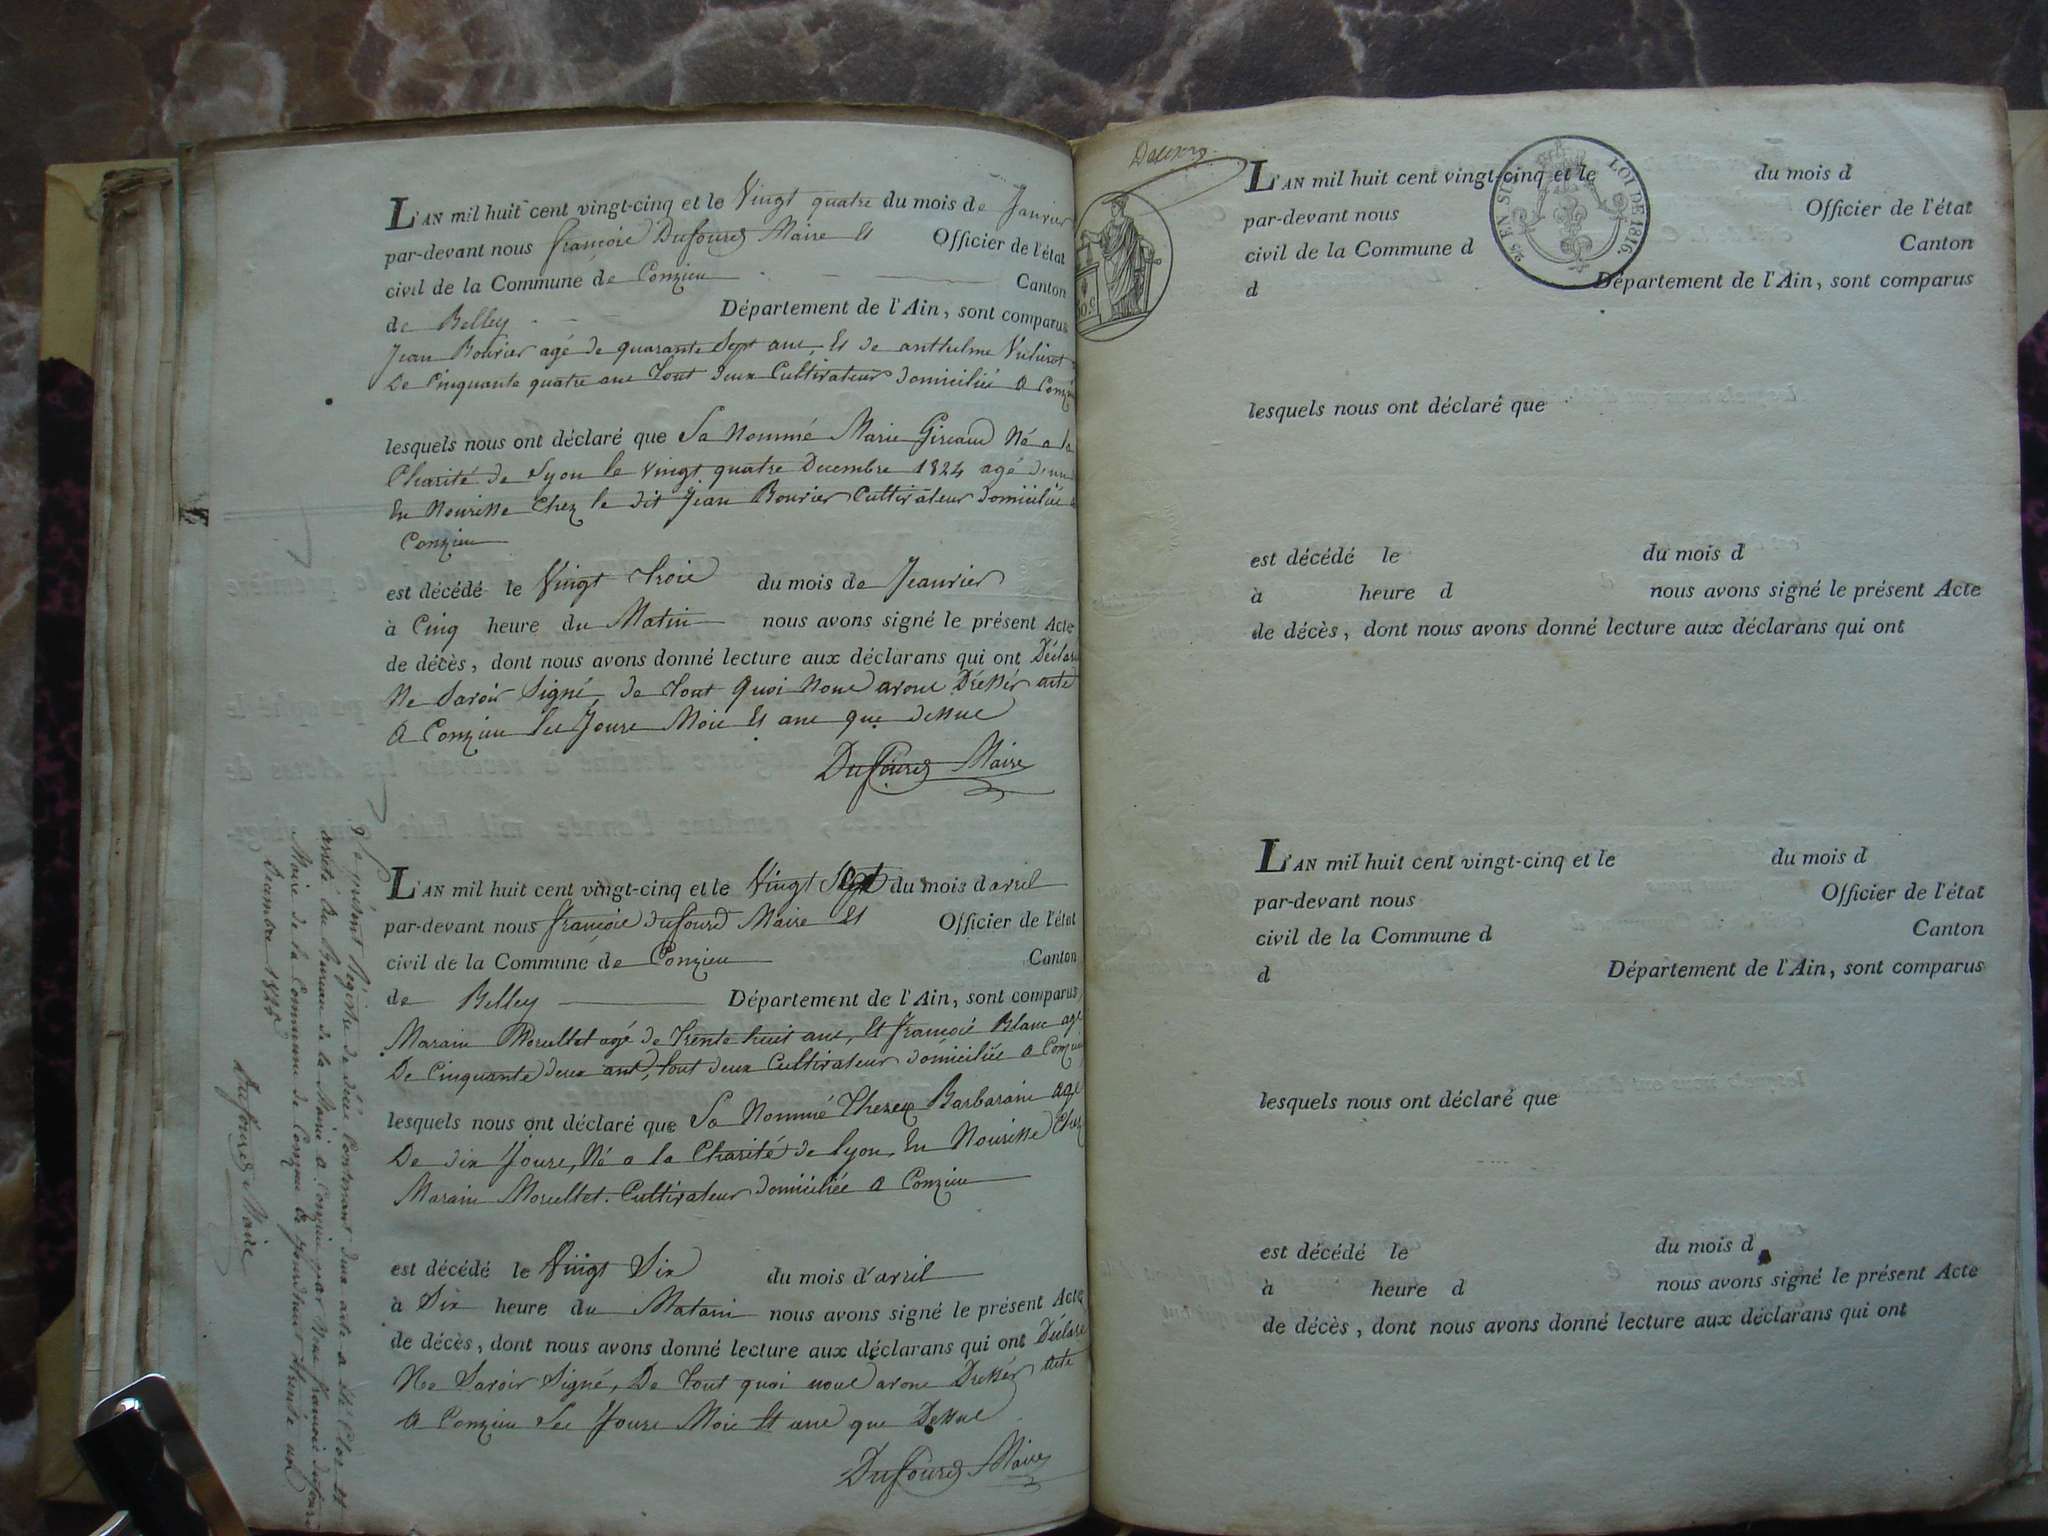 L'AN mil huit cent vingt-cinq et le Vingt quatre du mois de Janvier
par-devant nous françois Dufourd Maire Et Officier de l'état
civil de la Commune de Conzieu Canton
de Belley Département de l'Ain, sont comparus
Jean Bouvier agé de quarante Sept ans, Et de anthelme
De Cinquante quatre ans Tout deux Cultivateur domicilié a
lesquels nous ont déclaré que Sa Nommé Marie Giraud Né a la
Charité de Lyon le vingt quatre Decembre 1824 agé
En Nourisse Chez le dit Jean Bouvier Cultivateur domicilié
Conzieu
est décédé le Vingt trois du mois de Jeanvier
à Cinq heure du Matin nous avons signé le présent Acte
de décès, dont nous avons donné lecture aux déclarans qui ont Déclaré
Ne Savoir Signé, de Tout Quoi Nous avons Dressér acte
A Conzieu Les Jours Mois Et ans que dessus
Dufourd Maire
L'AN mil huit cent vingt-cinq et le Vingt Sept du mois d avril
par-devant nous françois dufourd Maire Et Officier de l'état
civil de la Commune de Conzieu Canton
de Belley Département de l'Ain, sont comparus
Marain agé de Trente huit ans, Et françois Blanc agé
De Cinquante deux ans, Tout deux Cultivateur domiciliée A
lesquels nous ont déclaré que Sa Nommé Barbarain agé
De dix Jours, Né a la Charité de Lyon, En Nourisse Chez
Marain Cultivateur domiciliée A Conzieu
est décédé le Vingt Six du mois d'avril
à Six heure du Matain nous avons signé le présent Acte
de décès, dont nous avons donné lecture aux déclarans qui ont Déclaré
Ne Savoir Signé, De Tout quoi nous avons Dressér acte
A Conzieu Les Jours Mois Et ans que Dessus
Dufourd Maire
Le présent Régistre de décé Contenant deux acte a Eté Clos et
arrété Au Bureau de la Mairie A Conzieu par Nous françois dufourd
Maire de la Commune de Conzieu Ce Jourdhuit trente un
Decembre 1825
Dufourd Maire
L'AN mil huit cent vingt-cinq et le du mois d
par-devant nous Officier de l'état
civil de la Commune d Canton
d Département de l'Ain, sont comparus
LOI DE 1816.
lesquels nous ont déclaré que
est décédé le du mois d
à heure d nous avons signé le présent Acte
de décès, dont nous avons donné lecture aux déclarans qui ont
L'AN mil huit cent vingt-cinq et le du mois d
par-devant nous Officier de l'état
civil de la Commune d Canton
d Département de l'Ain, sont comparus
lesquels nous ont déclaré que
est décédé le du mois d
à heure d nous avons signé le présent Acte
de décès, dont nous avons donné lecture aux déclarans qui ont